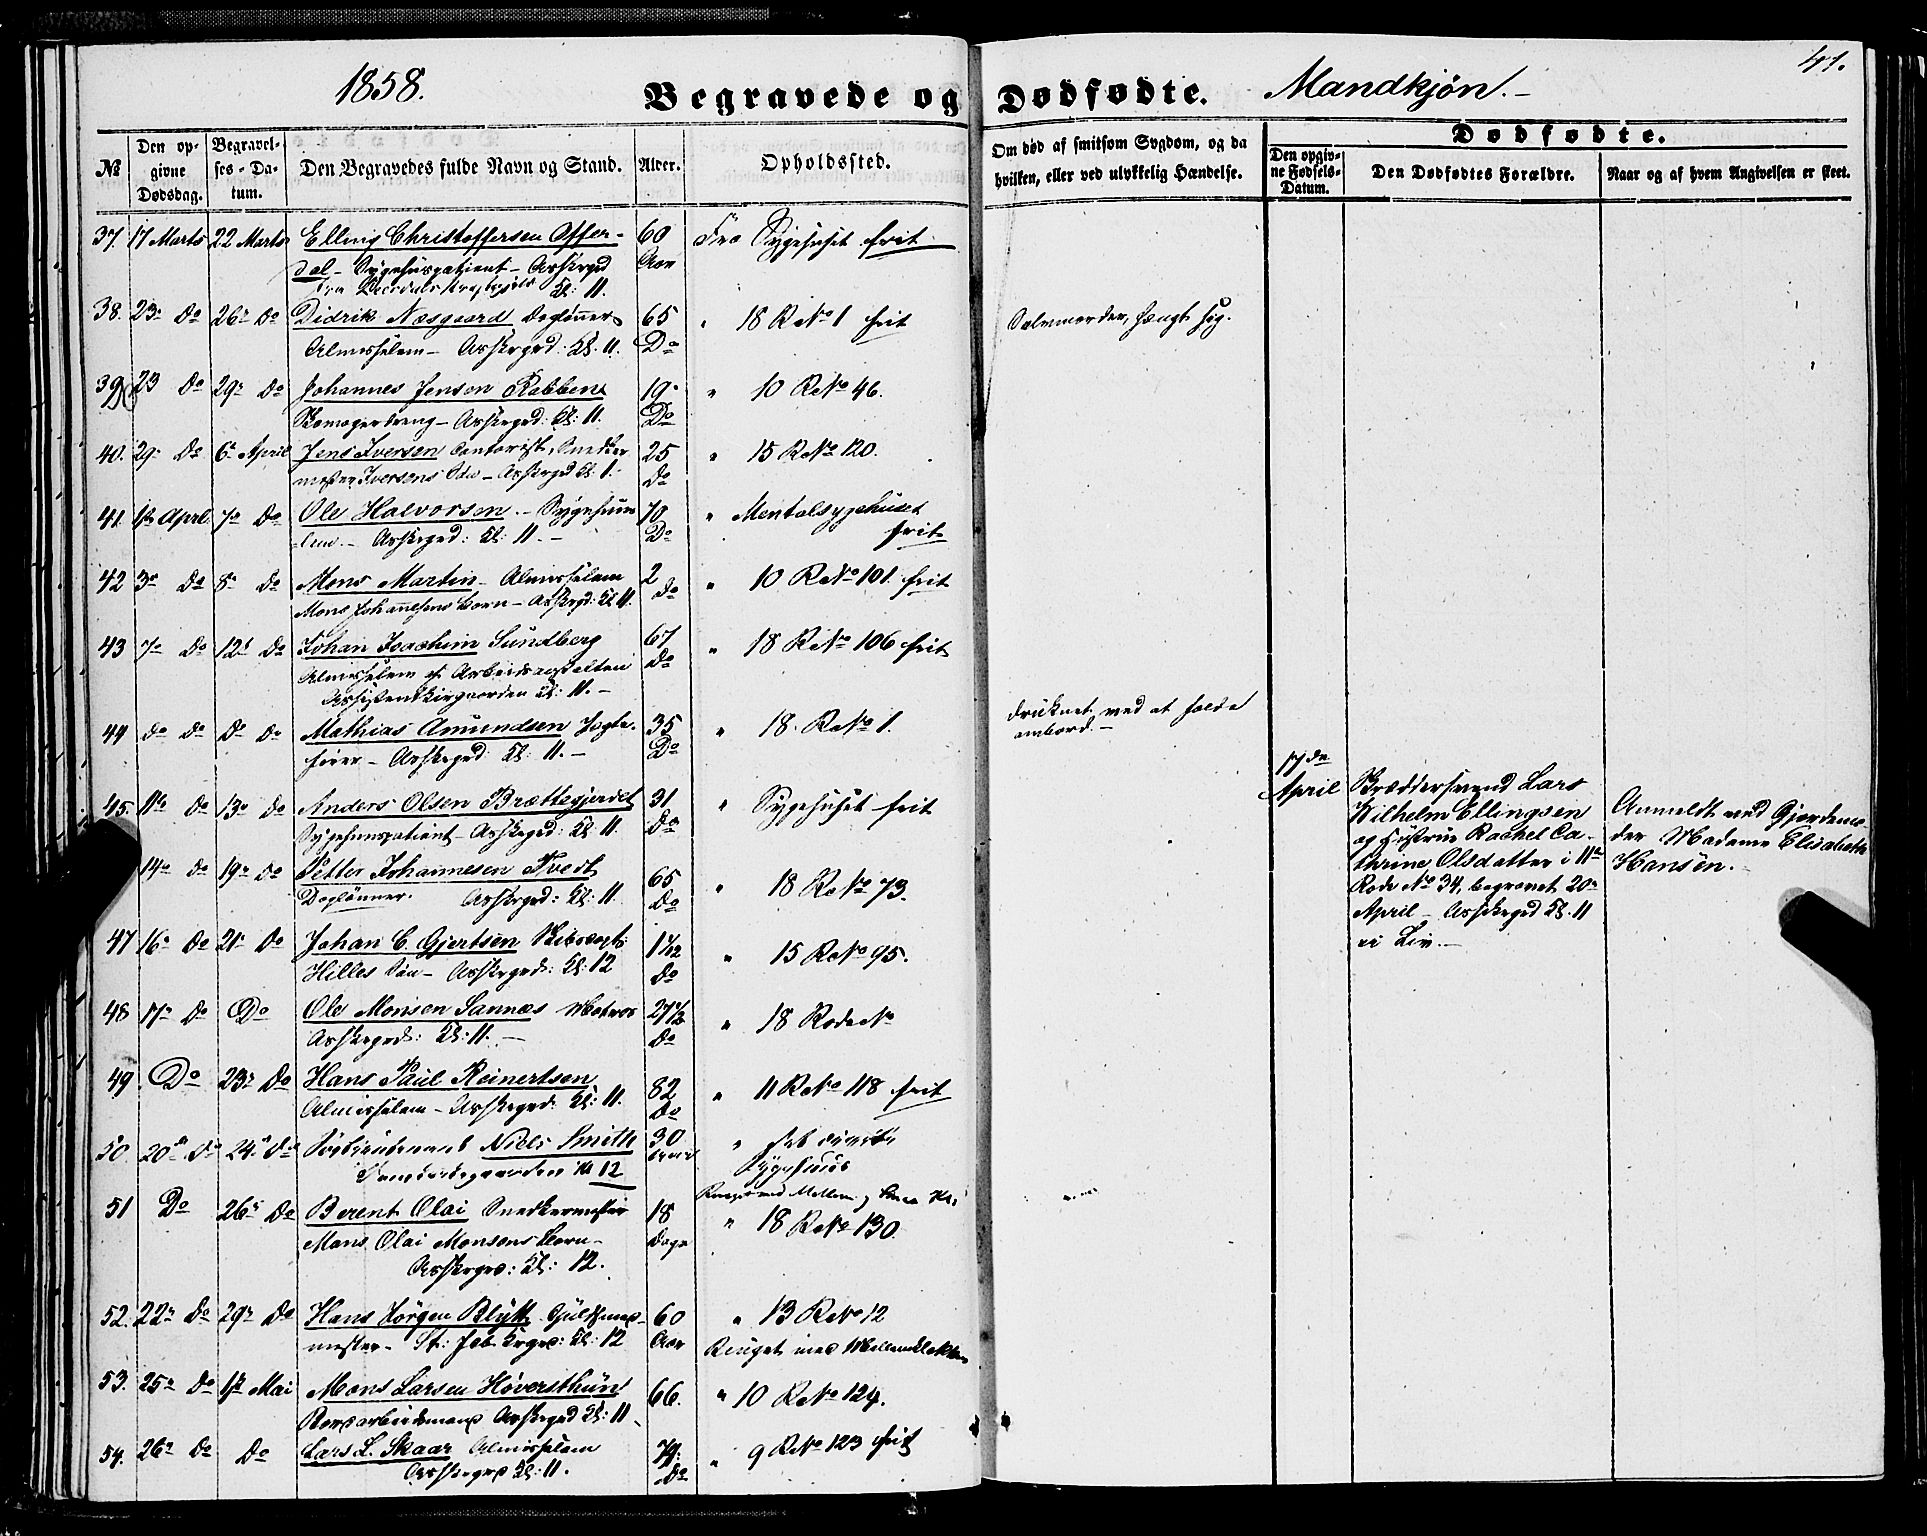 1858.
Begravede og Dødfødte. Mandkjøn.-
41.
Dødfødte.
№
Den opgivne Dødsdag.
Begravelses-Datum.
Den Begravedes fulde Navn og Stand.
Alder.
Opholdssted.
Om død af smitsom Sygdom, og da hvilken, eller ved ulykkelig Hændelse.
Den opgivne Fødsels-Datum.
Den Dødfødtes Forældre.
Naar og af hvem Angivelsen er skeet.
37. 17 Marts 22 Marts Elling Christoffersen Offer- 60 Fra Sygehuset frit
dal - Sygehuspatient - Asskrgrd Aar
Kl: 11.
38. 23. Do 26. Do Didrik Næsgaard Dagløner 65 " 18 R No 1 frit Selvmorder, hængt sig.
Almisselem - Asskrgrd: Kl. 11. Do
39 23 Do 29. Do Johannes Jenson Rabben 19. " 10 R No 46.
Skomagerdreng - Asskrgrd: Kl: 11. Do
40. 29. Do 6. April Jens Iversen Contorist, Snedker 25 " 15 R No 120.
mester Iversens Søn - Asskrgrd Kl: 1. Do
41. 1ste April 7. Do Ole Halvorsen - Sygehuus 70 " Mentalsygehuset
lem. - Asskrgrd: Kl: 11. - Do frit
42 3. Do 8. Do Mons Martin - Almisselem 2 " 10 R No 101. frit
Mons Johannesens Barn - Asskrgrd: Kl 11. Do
43 7. Do 12. Do Johan Joachim Sundberg 67 " 18 R No 106 frit
Almisselem af Arbeidsanstalten Do
Assistentkirgaarden Kl: 11. -
44 do Do Do Do Mathias Amundsen Jagte- 35 " 18. R No 1. druknet ved at falde
fører - Asskrgrd: Kl: 11. - Do ombord. -
45. 11te Do 13. Do Anders Olsen Brættegjerdet 31 " Sygehuset frit
Sygehuuspatient - Asskrgrd: Kl: 11. Do
14. Do 19. Do Petter Johannesen Tvedt 65 " 18 R No 73.
Daglønner. Asskrgrd: Kl: 11 Do
47 16. Do 21. Do Johan C. Gjertsen 1 1/2 " 15 R No 95.
Hilles Søn - Asskrgrd: Kl: 12 Do
48 17. Do Do Ole Monsen Sannæs Matros 27 1/2 " 18 Rode No
Asskrgrd: Kl: 11. - Do
49 Do 23. Do Hans Paul Reinertsen 82 " 11 R No 118 frit
Almisselem - Asskrgrd: Kl: 11. Do
50. 20. Do 24. Do Niels Smith 30 "
Kl 12 Sygehuus
51 Do 26. Do Berent Olai Snedkermester 18 " 18 R No 130.
Mons Olai Monsens Barn - Dage
Asskrgrd: Kl: 12.
52. 22. Do 29. Do Hans Jørgen Blytt Guldsmed- 60 " 13 R No 12
mester - St: Jcb: krgrd: Kl: 12 Aar Ringet med Mellemklokken
53. 25. Do 1ste Mai Mons Larsen Høversthun 66. " 10 R No 124.
Asskrgrd Kl: 11
54. 26. Do Do Lars L. Skaar Almisselem 79. " 9 R No 123 frit
Asskrgrd Kl: 11. Do
17de April
Lars
Wilhelm Ellingsen
og Hustrue Rachel Ca-
thrine Olsdatter i 11te
Rode No 34, begravet 20.
April - Asskrgrd Kl. 11
ei Liv. -
Anmeldt ved Gjordemo-
der Madame Elisabeth
Hansen.